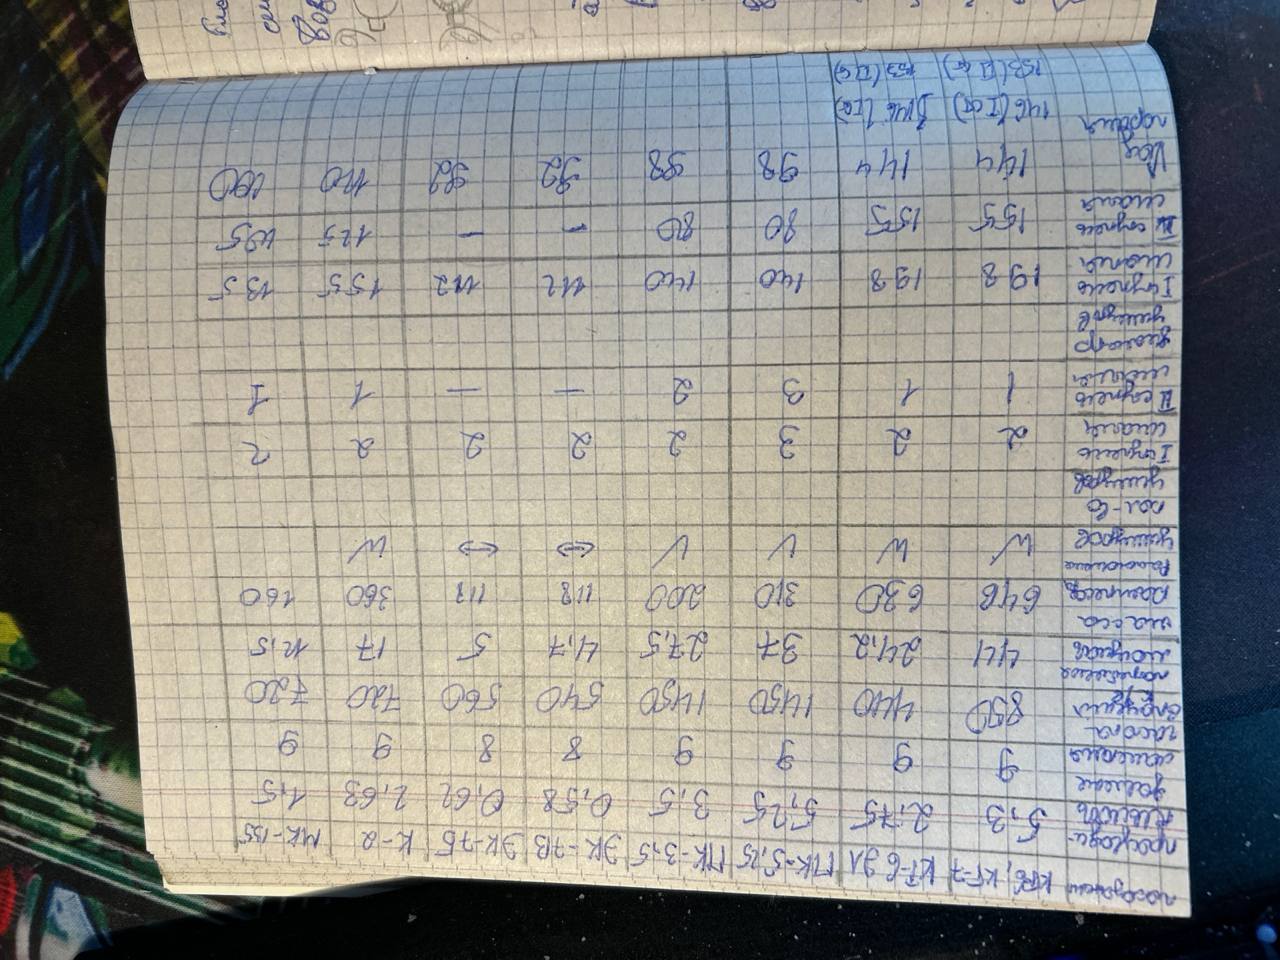 показатели КТ6, КТ-7 КТ-6 Эл ПК-5,25 ПК-3,5 ЭК-7В ЭК-7Б К-2 МК-135
производи- 5,3 2,75 5,25 3,5 0,58 0,62 2,63 1,5
давление 9 9 9 9 8 8 9 9
частота 850 440 1450 1450 540 560 720 720
потребляемая мощность 44 24,2 37 27,5 4,7 5 17 12,5
масса 646 630 310 200 118 118 360 160
Расположение цилиндров W W V V ⇔ ⇔ W
кол-во цилиндров
I ступень сжатия 2 2 3 2 2 2 2 2
II ступень сжатия 1 1 3 2 – – 1 1
диаметр цилиндров
I ступень сжатия 198 198 140 140 112 112 155 135
II ступень сжатия 155 155 80 80 – – 125
Ход поршня 144 144 98 98 92 92 110
146 (I ст) 146 (I ст)
153 (II ст) 153 (II ст)